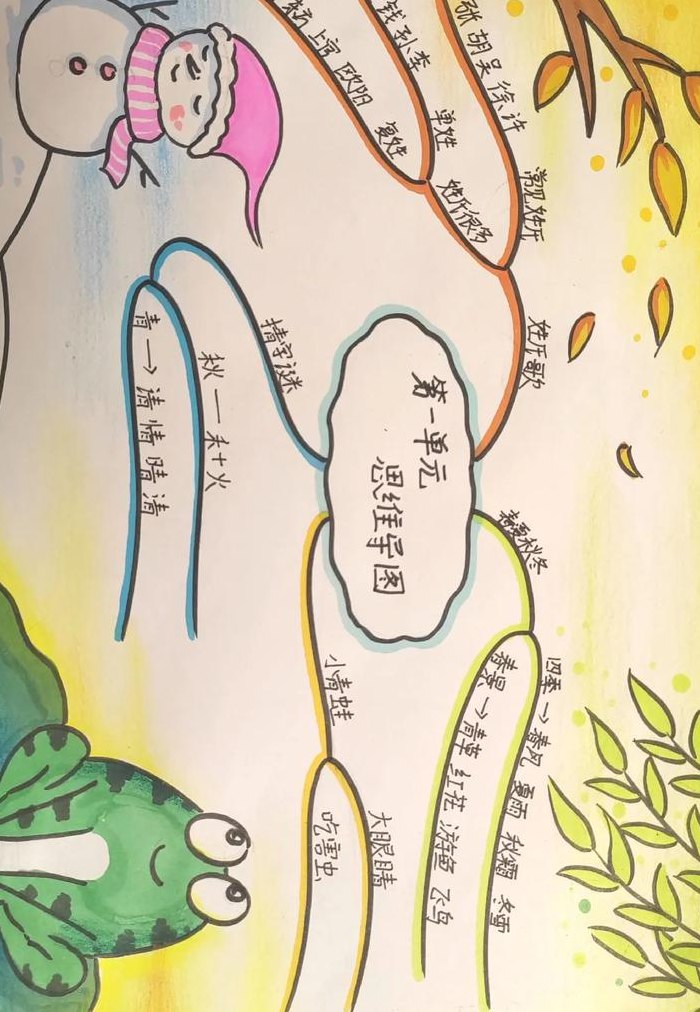 第一单元
思维导图
姓氏歌
常见姓氏
张 胡 吴 徐 许
姓氏很多
单姓
钱 孙 李
复姓
上官 欧阳
春夏秋冬
四季→春风 夏雨 秋霜 冬雪
春景→青草 红花 游鱼 飞鸟
猜字谜
秋——禾+火
青→清 情 晴 清
小青蛙
大眼睛
吃害虫